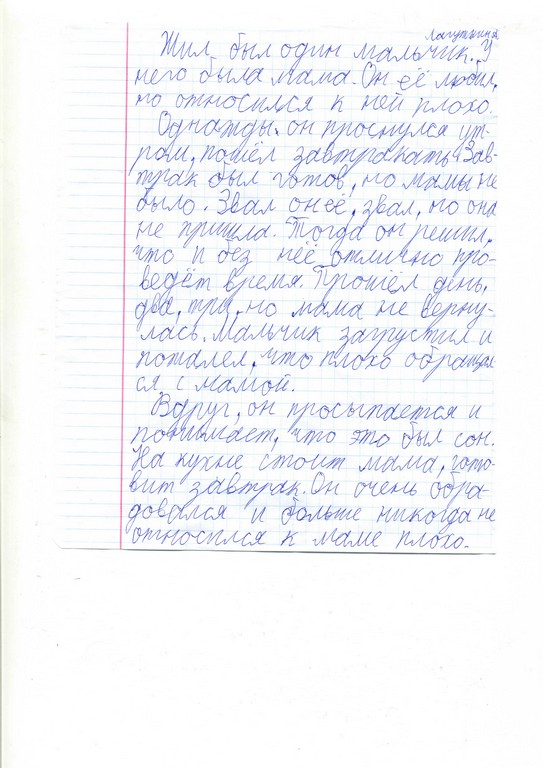 Лагуткина
Жил был один мальчик. У
него была мама. Он её любил,
но относился к ней плохо.
Однажды он проснулся ут-
ром, пошёл завтракать. Зав-
трак был готов, но мамы не
было. Звал он её, звал, но она
не пришла. Тогда он решил,
что и без неё отлично про-
ведёт время. Прошёл день,
два, три, но мама не верну-
лась. Мальчик загрустил и
пожалел, что плохо обращал
ся с мамой.
Вдруг, он просыпается и
понимает, что это был сон.
На кухне стоит мама, гото-
вит завтрак. Он очень обра-
довался и больше никогда не
относился к маме плохо.